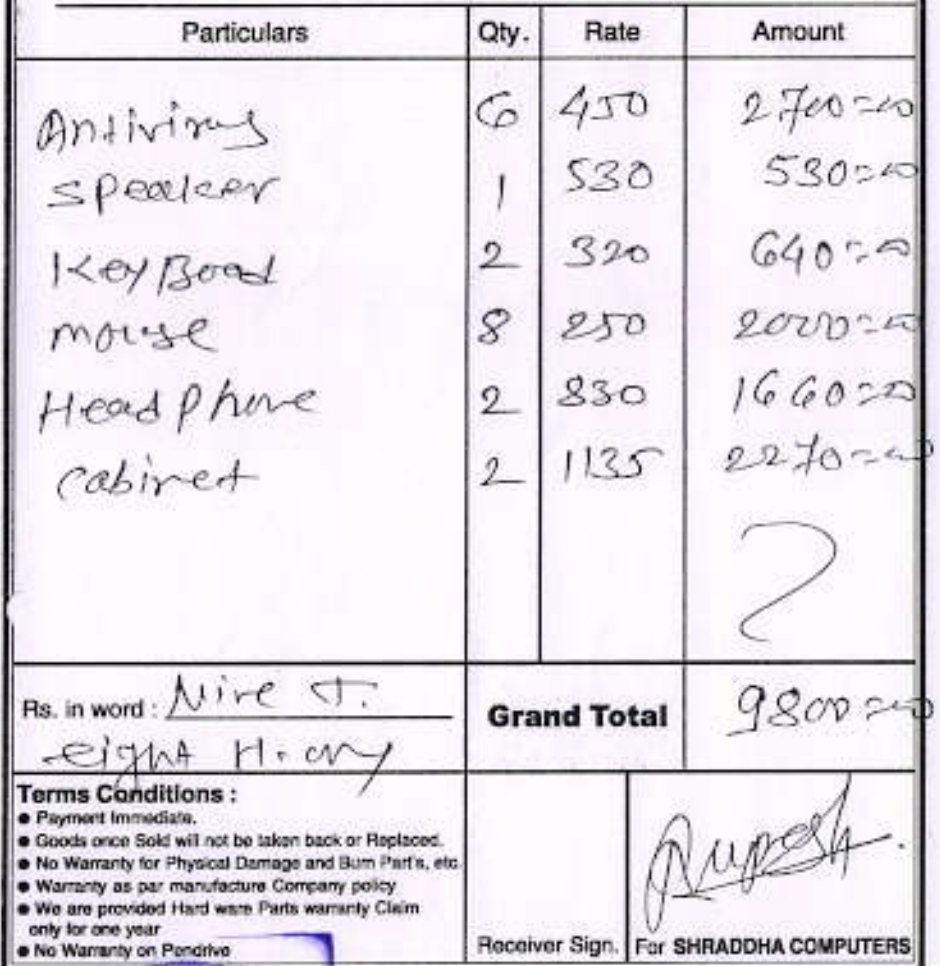 Particulars Qty. Rate Amount
Antivirus 6 450 2700=00
Speaker 1 530 530=00
KeyBoad 2 320 640=00
mouse 8 250 2000=00
Head Phone 2 830 1660=00
cabinet 2 1135 2270=00
Rs. in word : Nine T. Grand Total 9800=00
eight H. only
Terms Conditions :
● Payment Immediate.
● Goods once Sold will not be taken back or Replaced.
● No Warranty for Physical Damage and Burn Part's, etc
● Warranty as par manufacture Company policy
● We are provided Hard ware Parts warranty Claim
only for one year
● No Warranty on Pendrive
Rupesh
Receiver Sign. For SHRADDHA COMPUTERS